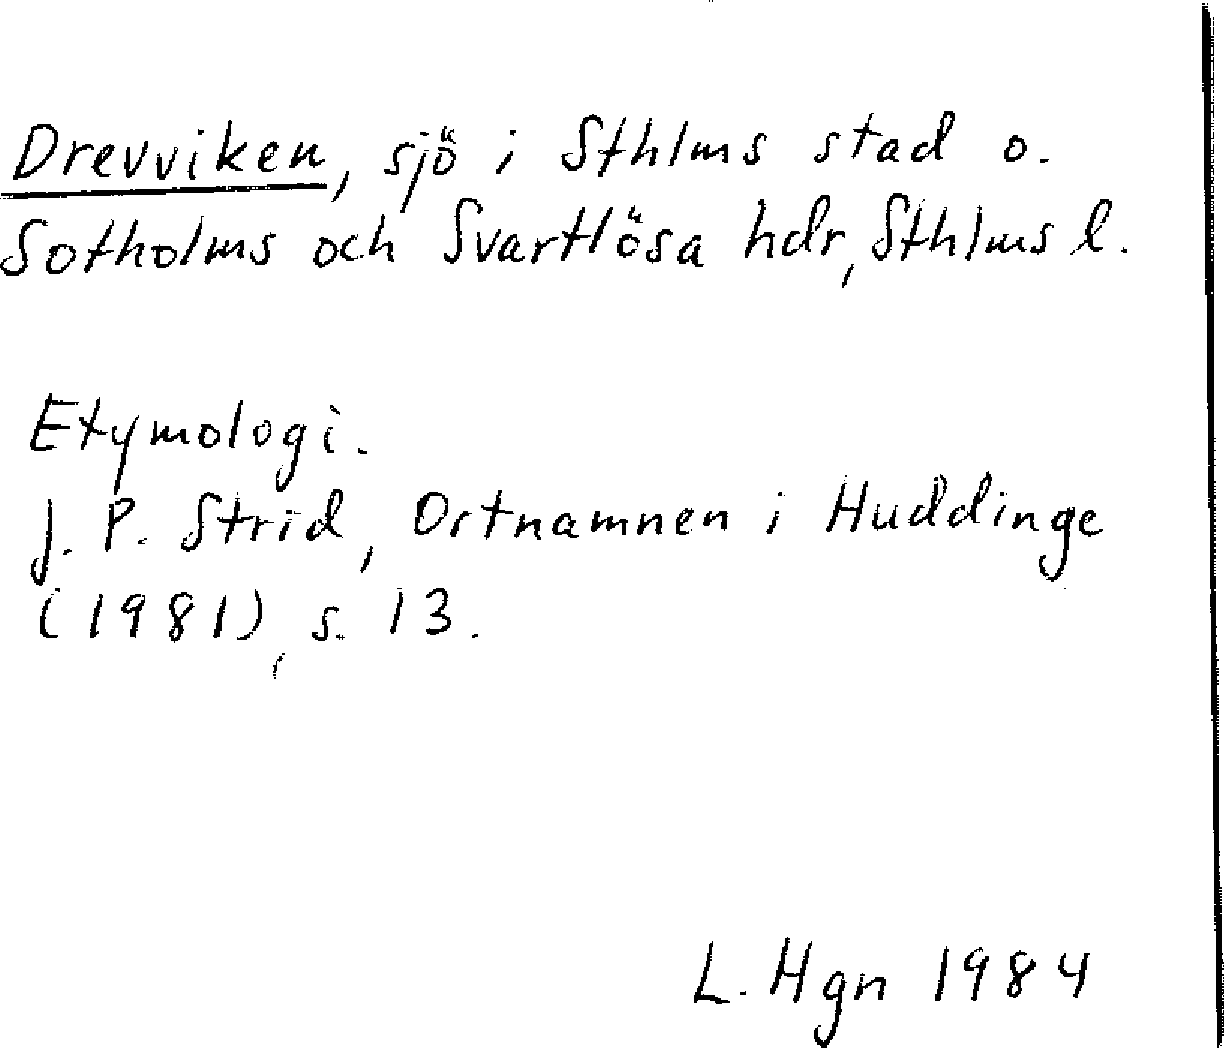 Drevviken, sjö i Sthlms stad o.
Sotholms och Svartlösa hdr, Sthlms l.
Etymologi.
J. P. Strid, Ortnamnen i Huddinge
(1981), s. 13.
L. Hgn 1984